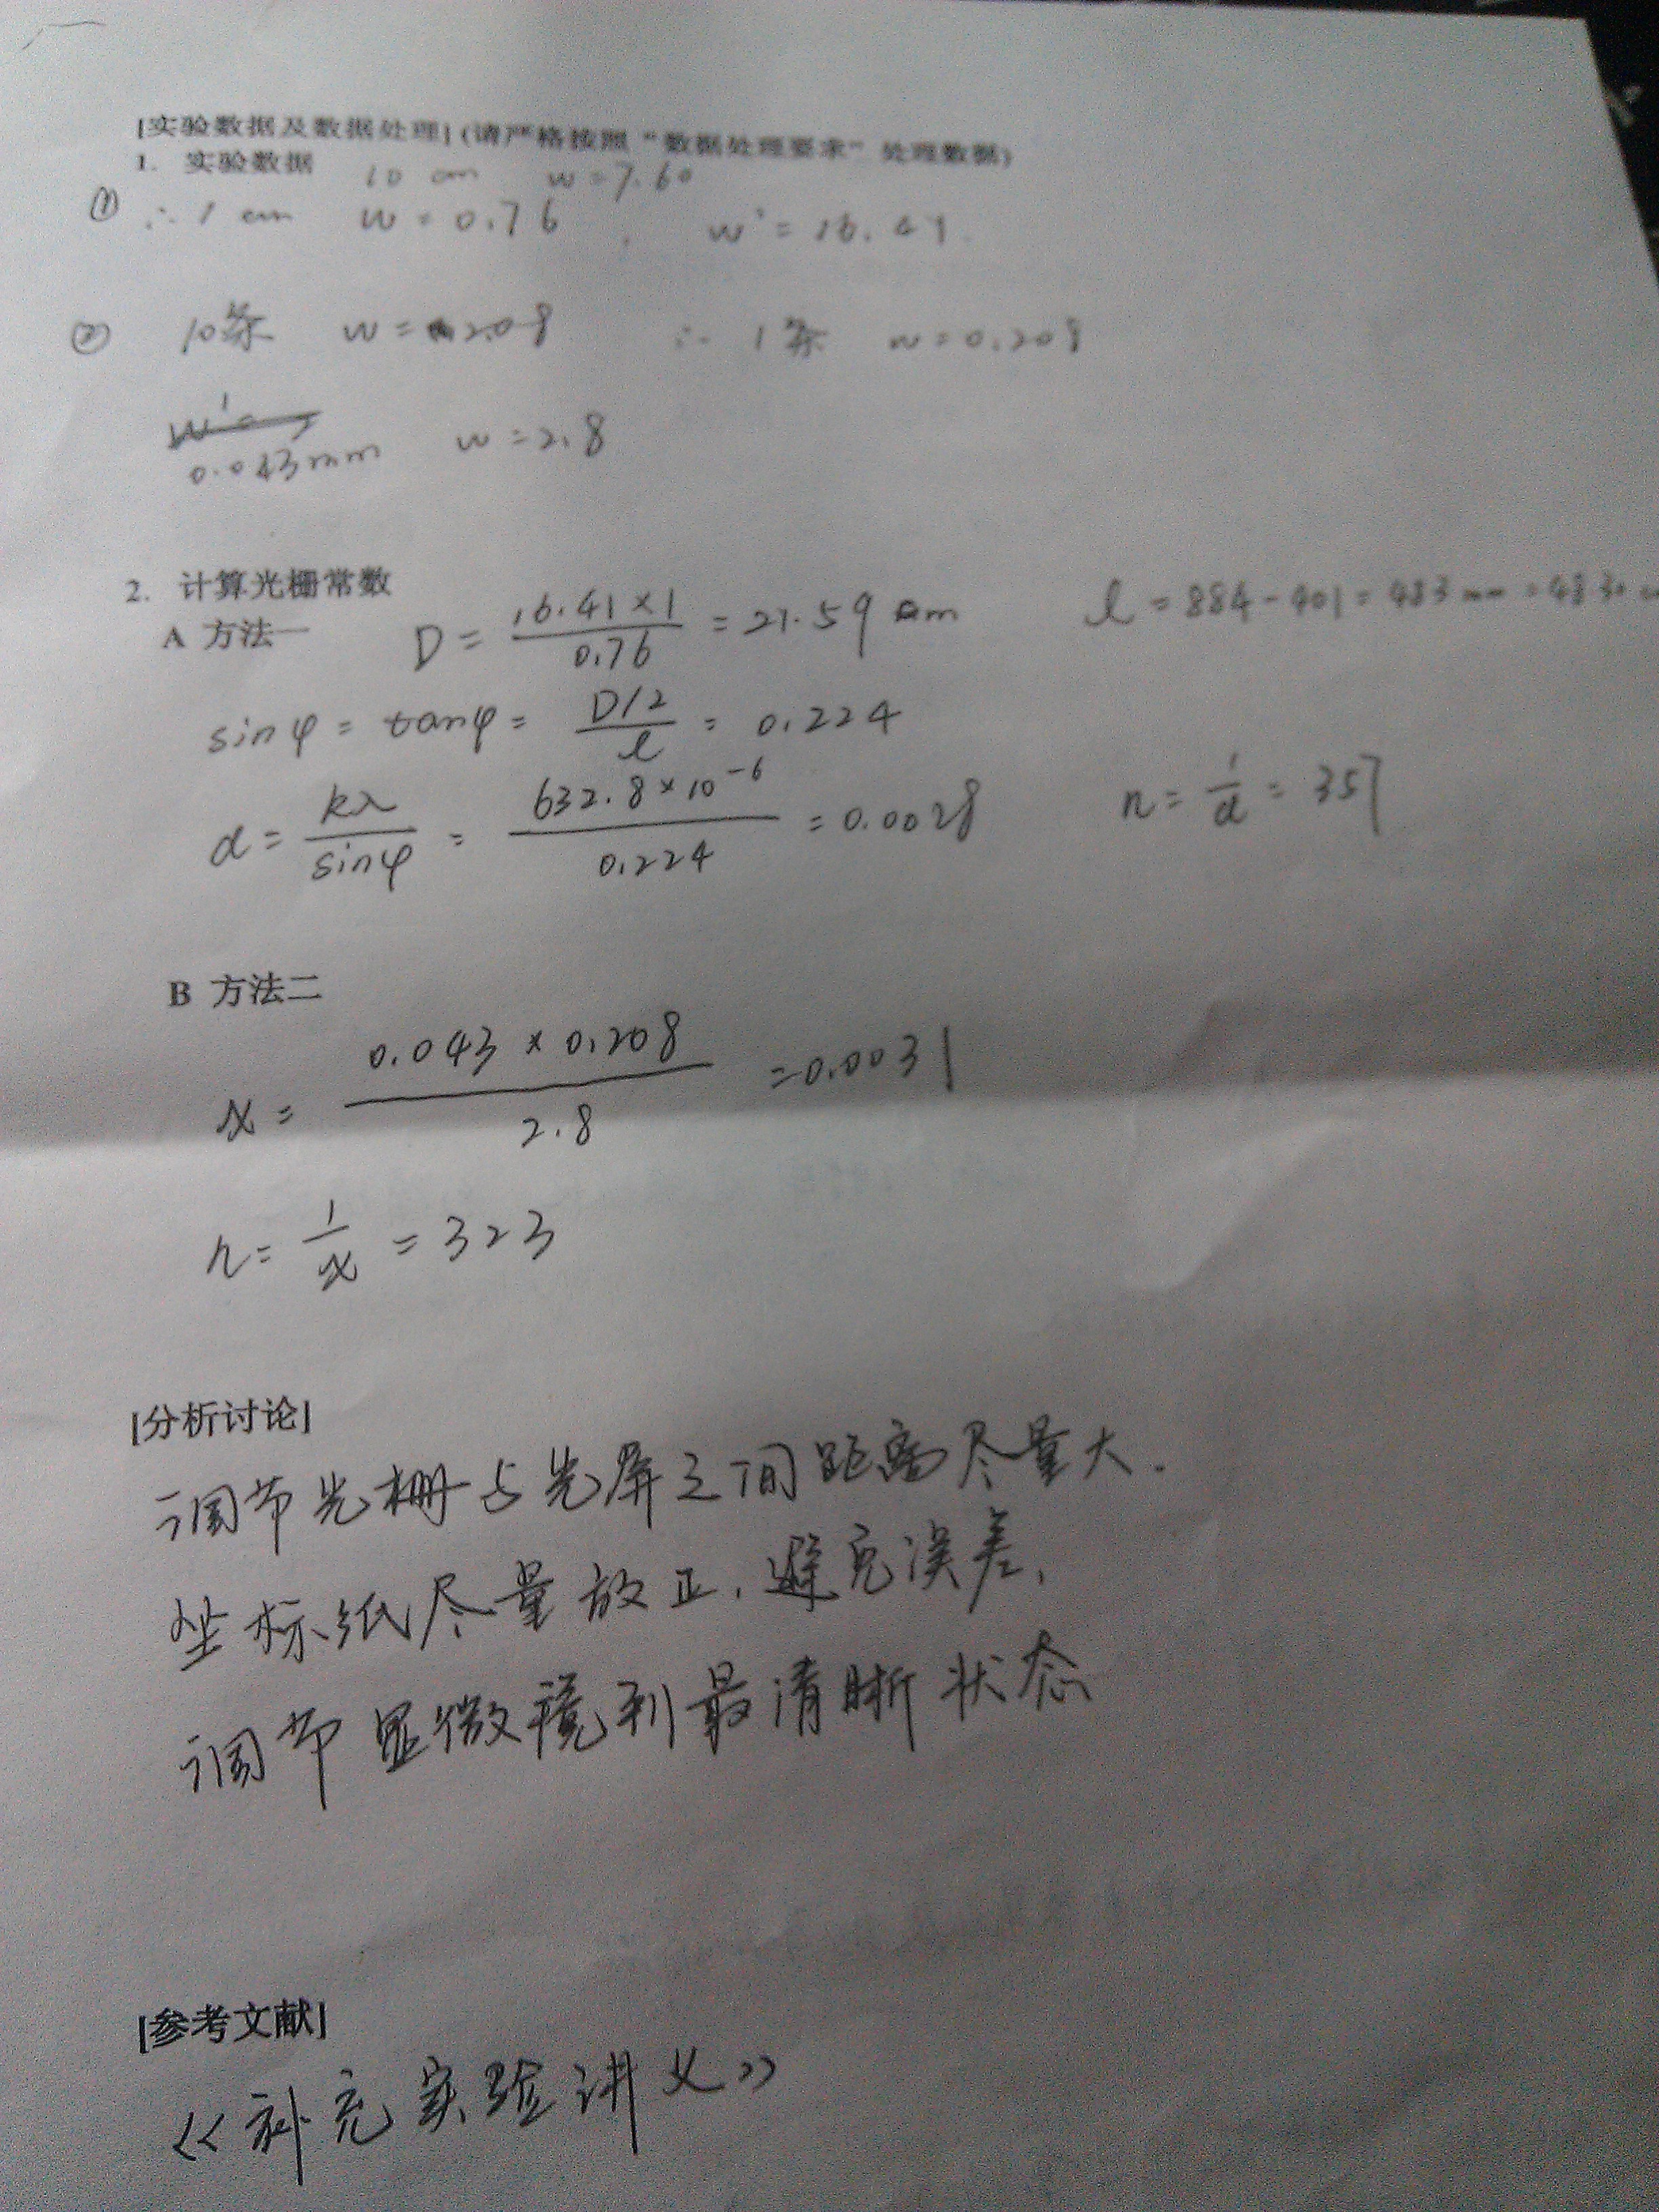 [实验数据及数据处理] (请严格按照“数据处理要求”处理数据)
1. 实验数据 10 cm w=7.60
① ∴ 1 cm w=0.76 , w'=16.41
② 10条 w=2.08 ∴ 1条 w=0.208
0.043mm w=2.8
2. 计算光栅常数
A 方法一 D = 16.41×1 / 0.76 = 21.59 cm l = 884-401=483mm=48.30
sinφ = tanφ = D/2 / l = 0.224
d = kλ / sinφ = 632.8×10⁻⁶ / 0.224 = 0.0028 n = 1/d = 357
B 方法二
x = 0.043 × 0.208 / 2.8 =0.0031
n = 1/x = 323
[分析讨论]
调节光栅与光屏之间距离尽量大.
坐标纸尽量放正,避免误差,
调节显微镜到最清晰状态
[参考文献]
《补充实验讲义》